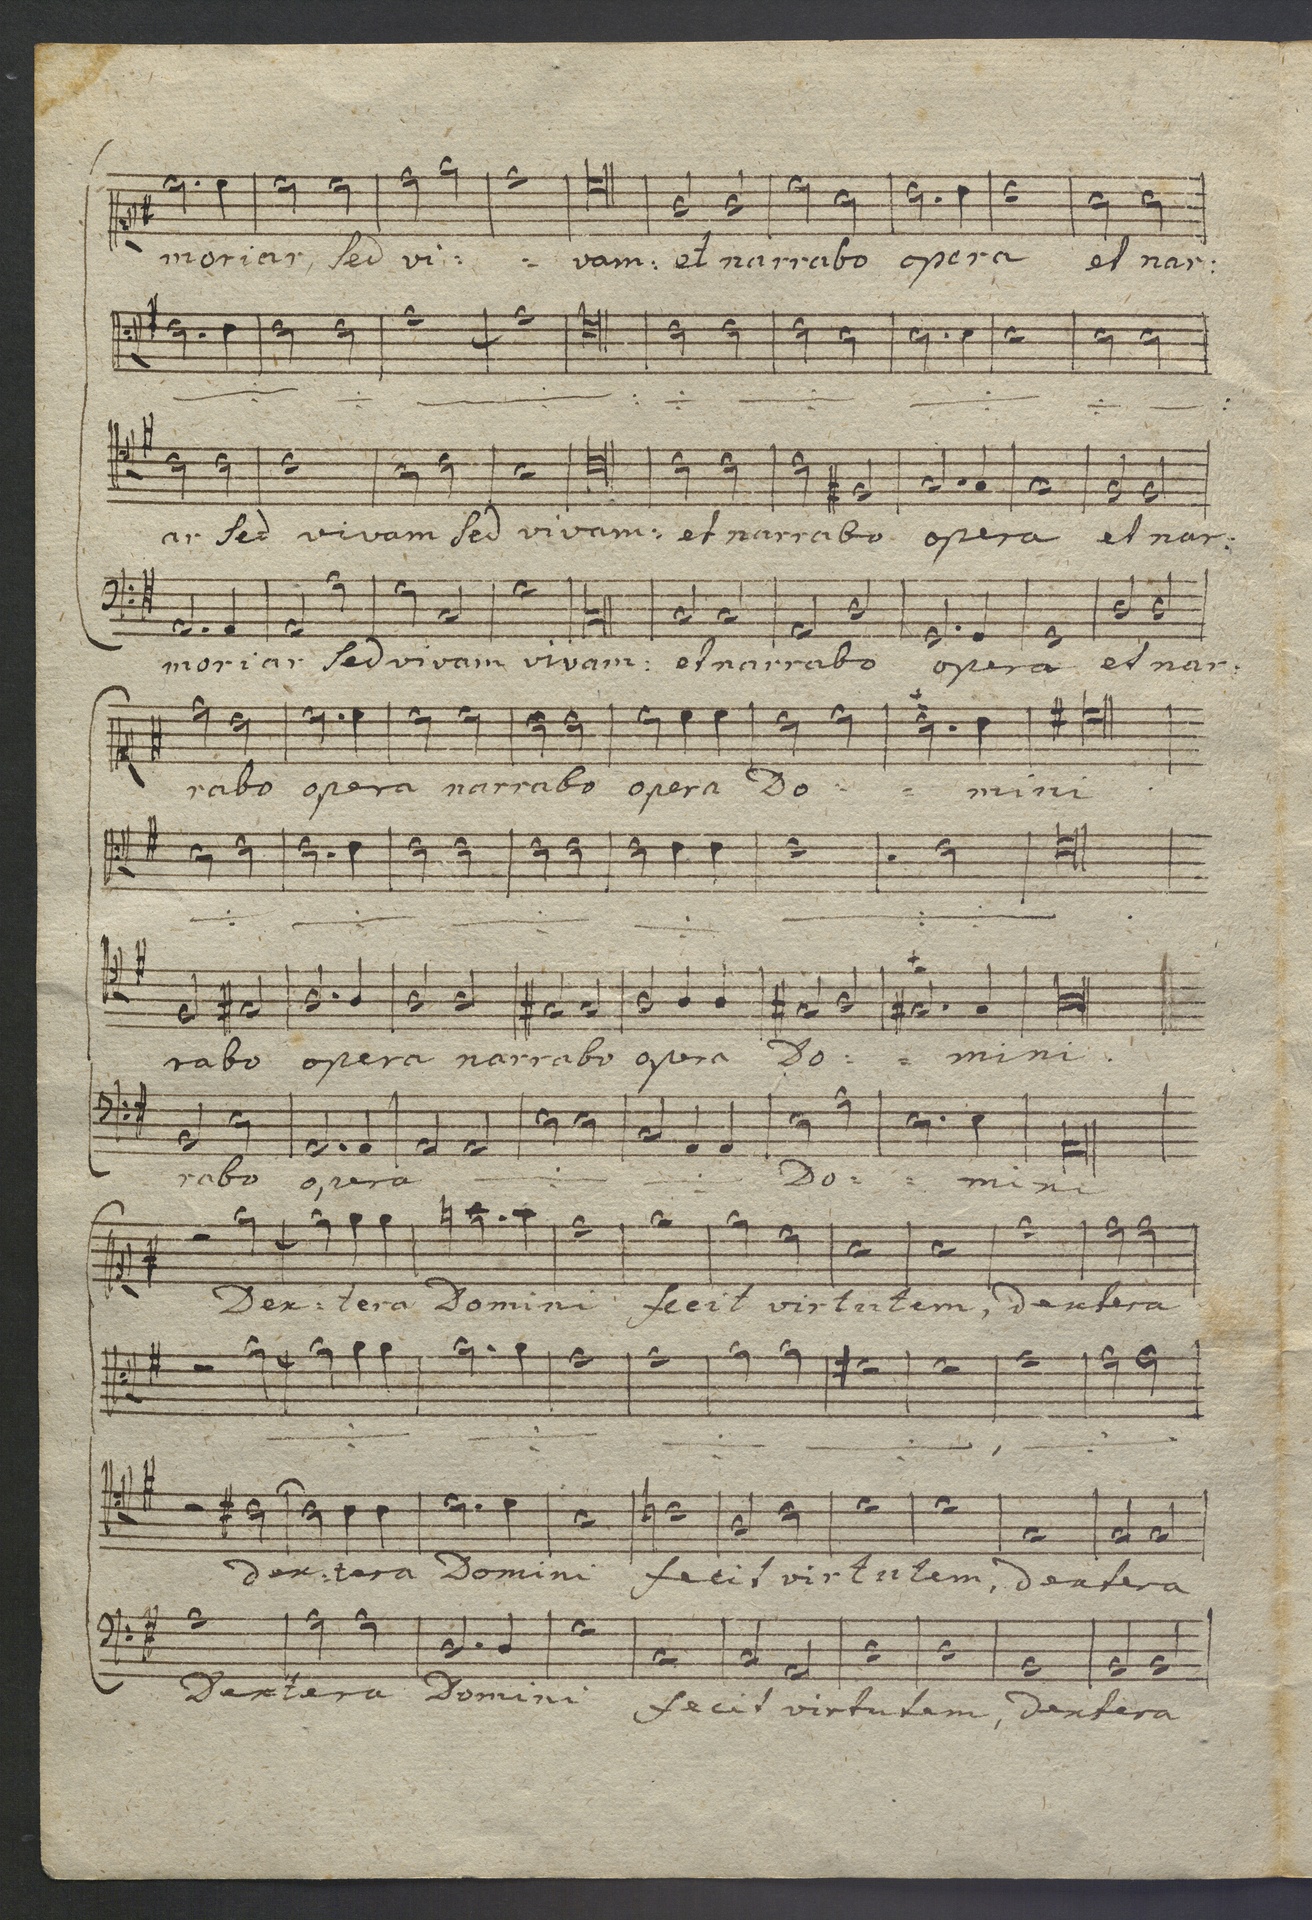 moriar, sed vi: = vam: et narrabo opera et nar:
ar sed vivam sed vivam: et narrabo opera et nar:
moriar sed vivam vivam: et narrabo opera et nar:
rabo opera narrabo opera Do = = mini
rabo opera narrabo opera Do: = mini.
rabo opera Do: = mini
Dex: tera Domini fecit virtutem, dextera
dex: tera Domini fecit virtutem, dextera
Dextera Domini fecit virtutem, dextera